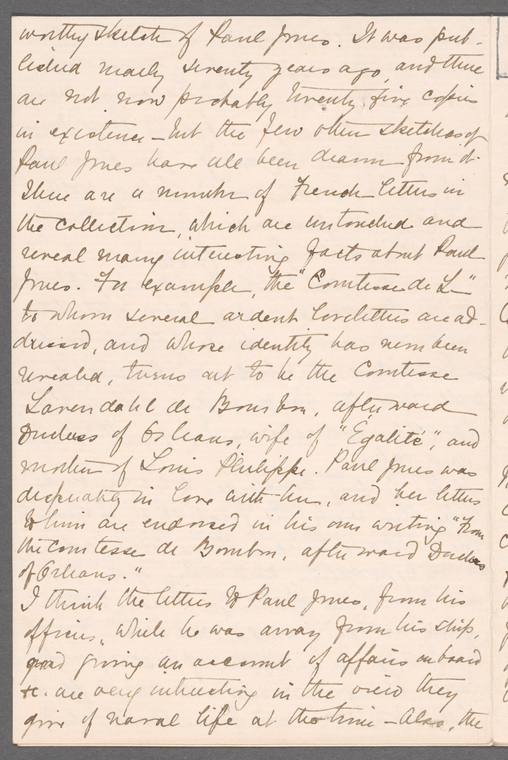 worthy sketch of Paul Jones. It was pub-
lished nearly seventy years ago, and there
are not now probably twenty five copies
in existence - but the few other sketches of
Paul Jones have all been drawn from it.
There are a number of French letters in
the collection, which are untouched and
reveal many interesting facts about Paul
Jones. For example, the "Comtesse de L-"
to whom several ardent loveletters are ad-
dressed, and whose identity has never been
revealed, turns out to be the Comtesse
Lavendahl de Bourbon, afterward
Duchess of Orleans, wife of "Egalité", and
mother of Louis Philippe. Paul Jones was
desperately in love with her, and her letters
to him are endorsed in his own writing "From
the Comtesse de Bourbon, afterward Duchess
of Orleans."
I think the letters to Paul Jones, from his
officers, while he was away from his ship,
and giving an account of affairs on board
&c. are very interesting in the view they
give of naval life at the time - Also, the